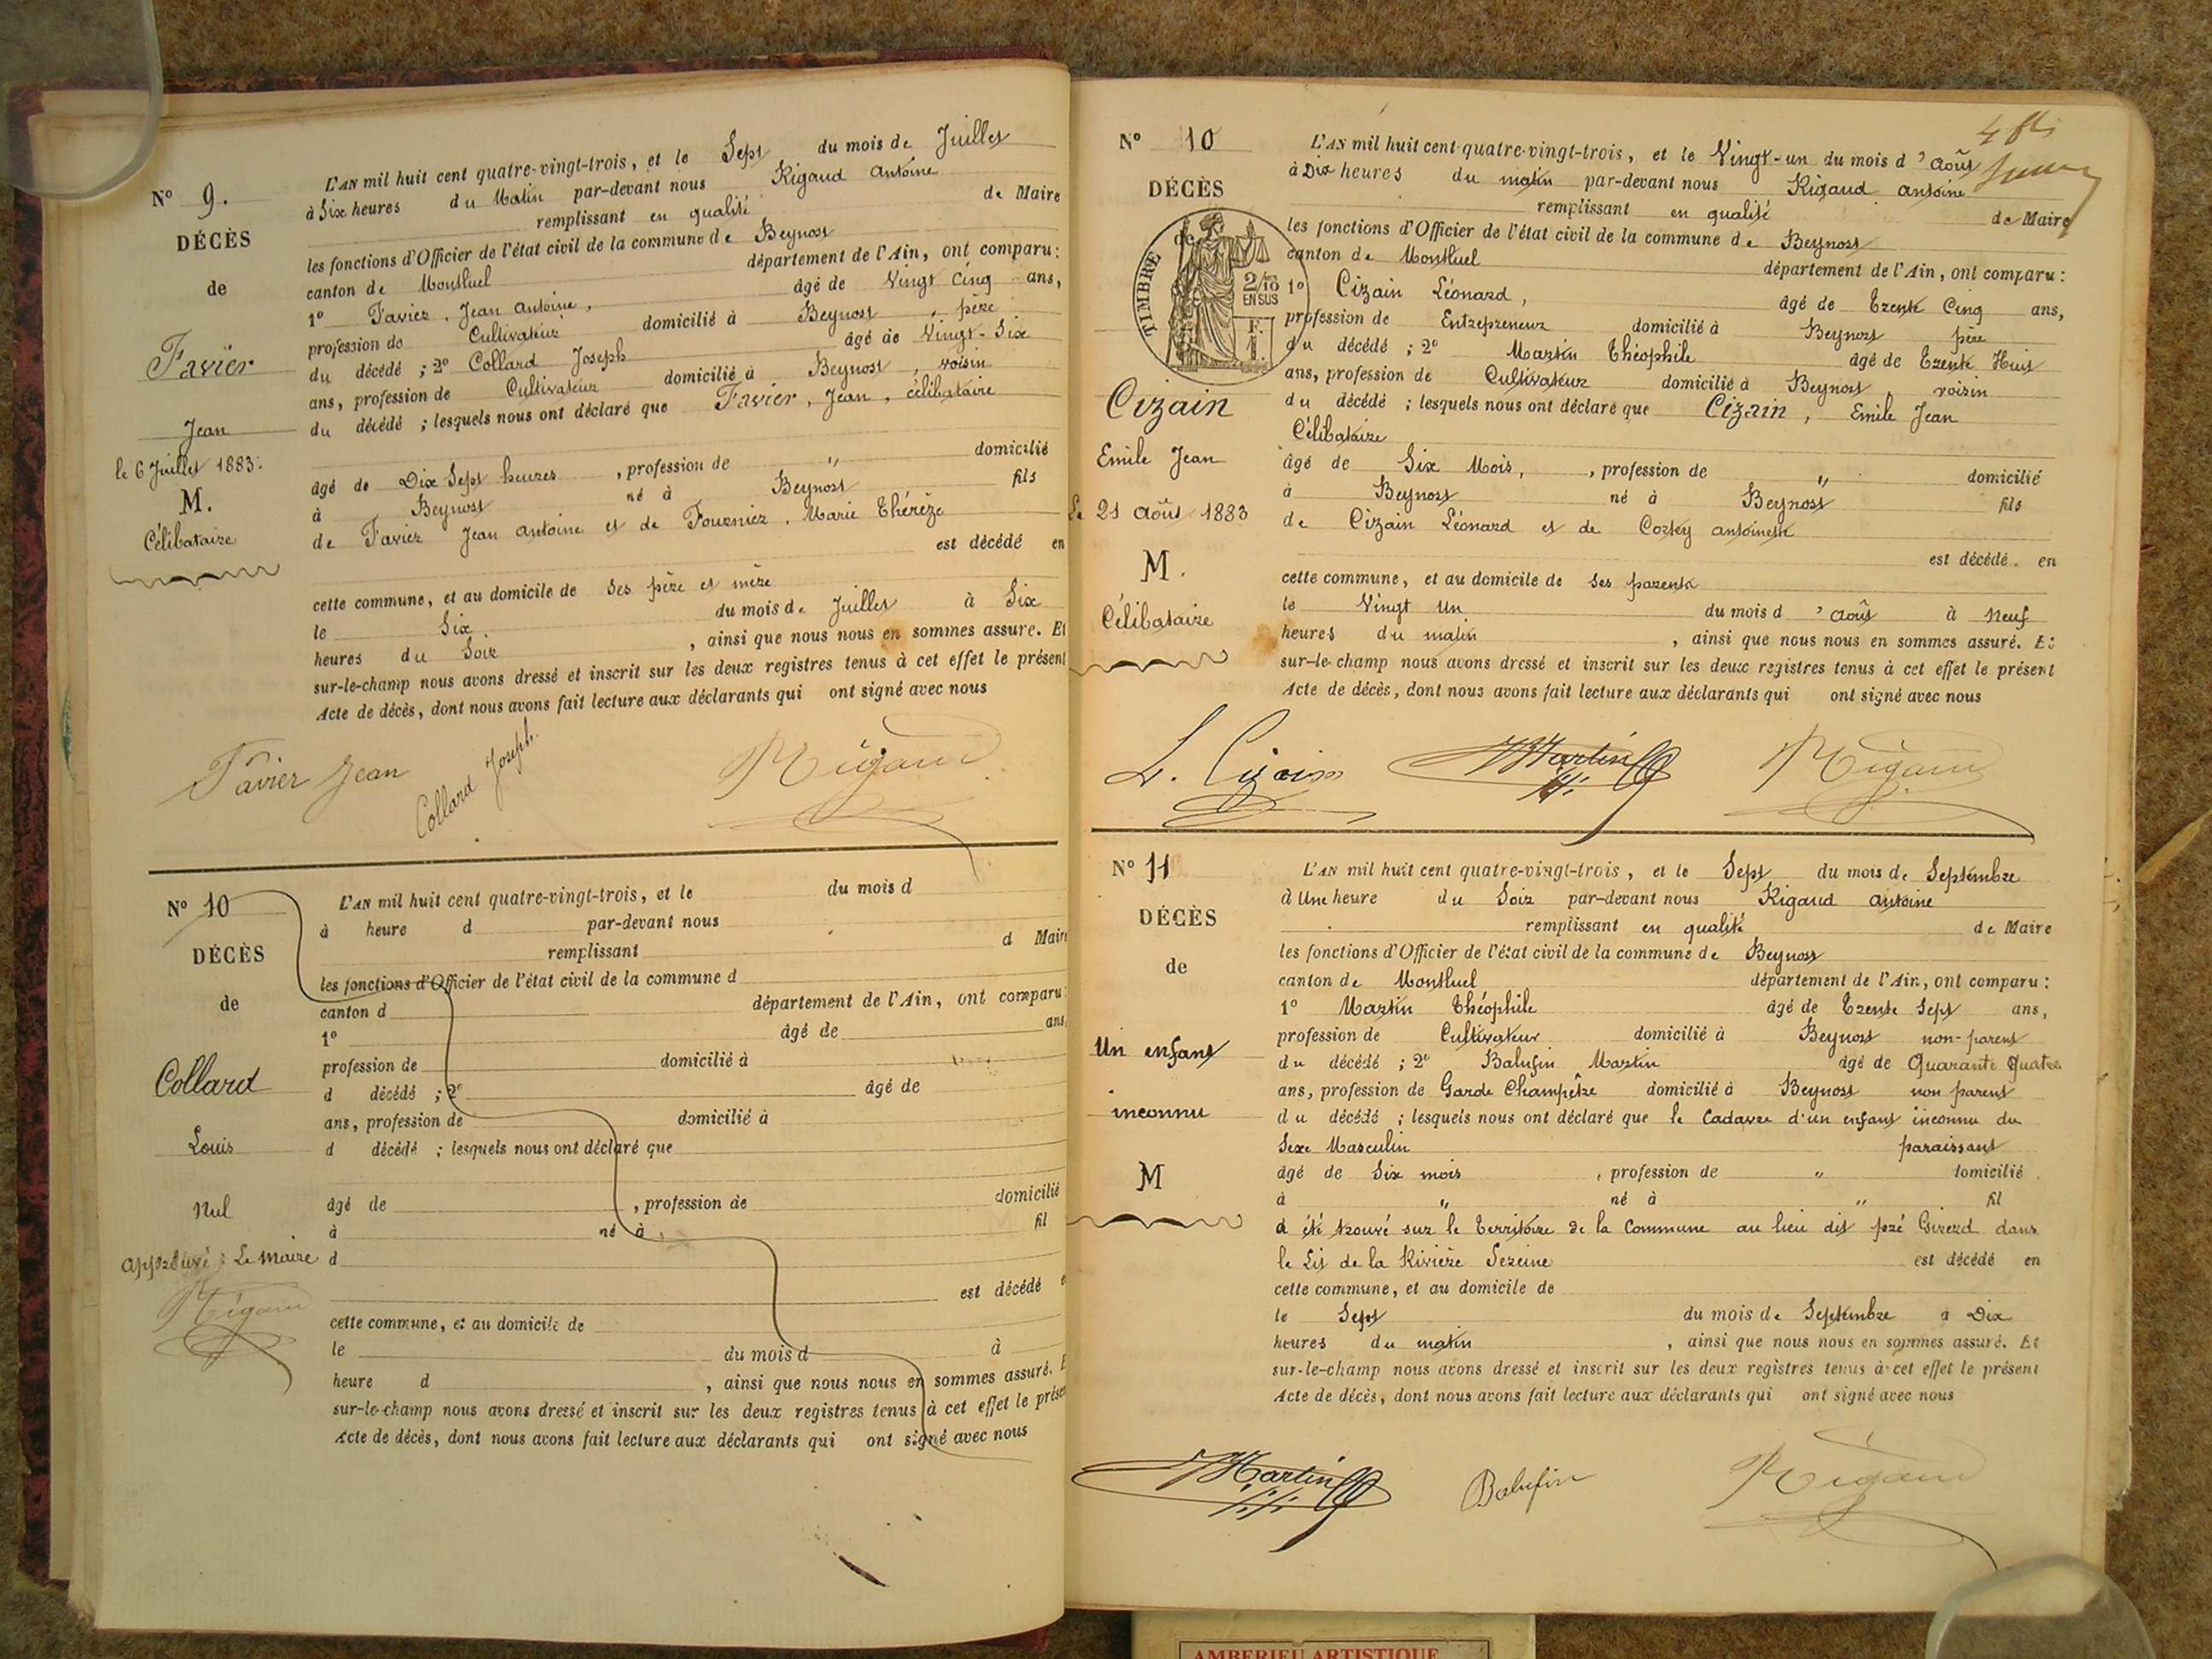 N° 9.
DÉCÈS
de
Favier
Jean
le 6 Juillet 1883.
M.
Célibataire
L'AN mil huit cent quatre-vingt-trois, et le Sept du mois de Juillet
à Six heures du Matin par-devant nous Rigaud Antoine
remplissant en qualité de Maire
les fonctions d'Officier de l'état civil de la commune de Beynost
canton de Montluel département de l'Ain, ont comparu:
1° Favier, Jean Antoine, âgé de Vingt Cinq ans,
profession de Cultivateur domicilié à Beynost, père
du décédé ; 2° Collard Joseph âgé de Vingt-Six
ans, profession de Cultivateur domicilié à Beynost, voisin
du décédé ; lesquels nous ont déclaré que Favier, Jean, célibataire
âgé de Dix Sept heures, profession de " domicilié
à Beynost né à Beynost fils
de Favier Jean Antoine et de Fournier, Marie Thérèze
est décédé en
cette commune, et au domicile de ses père et mère
le Six du mois de Juillet à Six
heures du Soir, ainsi que nous nous en sommes assuré. Et
sur-le-champ nous avons dressé et inscrit sur les deux registres tenus à cet effet le présent
Acte de décès, dont nous avons fait lecture aux déclarants qui ont signé avec nous
Favier Jean Collard Joseph. Rigaud
N° 10
DÉCÈS
de
Collard
Louis
Nul
Approuvé : Le Maire
Rigaud
L'AN mil huit cent quatre-vingt-trois, et le du mois d
à heure d par-devant nous
remplissant d Maire
les fonctions d'Officier de l'état civil de la commune d
canton d département de l'Ain, ont comparu:
1° âgé de ans,
profession de domicilié à
d décédé ; 2° âgé de
ans, profession de domicilié à
d décédé ; lesquels nous ont déclaré que
âgé de , profession de domicilié
à né à fil
d
est décédé e
cette commune, et au domicile de
le du mois d à
heure d , ainsi que nous nous en sommes assuré. E
sur-le-champ nous avons dressé et inscrit sur les deux registres tenus à cet effet le prése
Acte de décès, dont nous avons fait lecture aux déclarants qui ont signé avec nous
N° 10
DÉCÈS
de
TIMBRE
2/10
EN SUS
F.
1.
Cizain
Emile Jean
Le 21 août 1883
M.
Célibataire
L'AN mil huit cent quatre-vingt-trois, et le Vingt-un du mois d'août
à Dix heures du matin par-devant nous Rigaud antoine
remplissant en qualité de Maire
les fonctions d'Officier de l'état civil de la commune de Beynost
canton de Montluel département de l'Ain, ont comparu:
1° Cizain Léonard, âgé de Trente Cinq ans,
profession de Entrepreneur domicilié à Beynost père
du décédé ; 2° Martin Théophile âgé de Trente Huit
ans, profession de Cultivateur domicilié à Beynost, voisin
du décédé ; lesquels nous ont déclaré que Cizain, Emile Jean
Célibataire
âgé de Six Mois, , profession de " domicilié
à Beynost né à Beynost fils
de Cizain Léonard et de Cortey antoinette
est décédé en
cette commune, et au domicile de ses parents
le Vingt Un du mois d'août à Neuf
heures du matin , ainsi que nous nous en sommes assuré. Et
sur-le-champ nous avons dressé et inscrit sur les deux registres tenus à cet effet le présent
Acte de décès, dont nous avons fait lecture aux déclarants qui ont signé avec nous
L. Cizain Martin Rigaud
N° 11
DÉCÈS
de
Un enfant
inconnu
M
L'AN mil huit cent quatre-vingt-trois, et le Sept du mois de Septembre
à Une heure du Soir par-devant nous Rigaud antoine
remplissant en qualité de Maire
les fonctions d'Officier de l'état civil de la commune de Beynost
canton de Montluel département de l'Ain, ont comparu:
1° Martin Théophile âgé de Trente Sept ans,
profession de Cultivateur domicilié à Beynost non-parent
du décédé ; 2° Balufin Martin âgé de Quarante Quatre
ans, profession de Garde Champêtre domicilié à Beynost non parent
du décédé ; lesquels nous ont déclaré que le Cadavre d'un enfant inconnu du
Sexe Masculin paraissant
âgé de Six mois , profession de " domicilié
à " né à " fil
a été trouvé sur le Territoire de la Commune au lieu dit pré Girerd dans
le Lit de la Rivière Sereine est décédé en
cette commune, et au domicile de
le Sept du mois de Septembre à Dix
heures du matin , ainsi que nous nous en sommes assuré. Et
sur-le-champ nous avons dressé et inscrit sur les deux registres tenus à cet effet le présent
Acte de décès, dont nous avons fait lecture aux déclarants qui ont signé avec nous
Martin Balufin Rigaud
AMBERIEU ARTISTIQUE